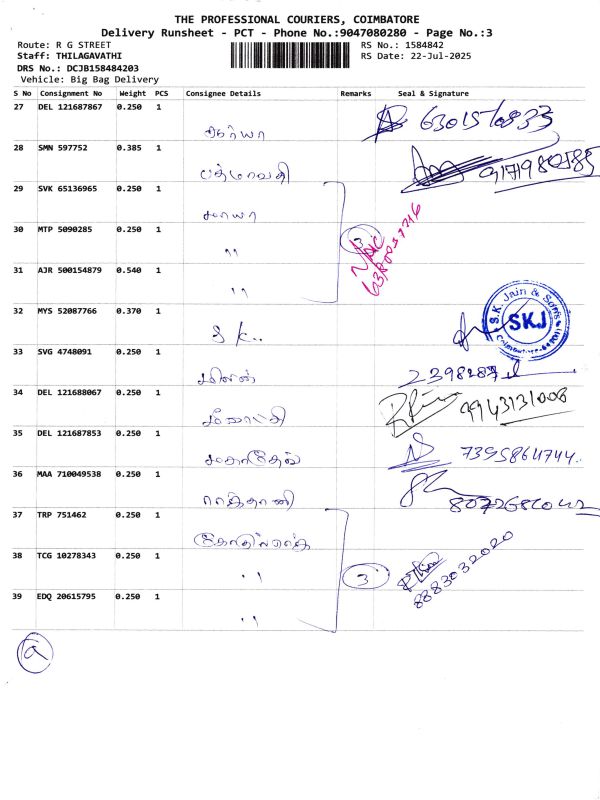 THE PROFESSIONAL COURIERS, COIMBATORE
Delivery Runsheet - PCT - Phone No.:9047080280 - Page No.:3
Route: R G STREET RS No.: 1584842
Staff: THILAGAVATHI RS Date: 22-Jul-2025
DRS No.: DCJB158484203
Vehicle: Big Bag Delivery
S No Consignment No Weight PCS Consignee Details Remarks Seal & Signature
27 DEL 121687867 0.250 1
28 SMN 597752 0.385 1 பத்மாவதி
29 SVK 65136965 0.250 1
30 MTP 5090285 0.250 1 " 3
31 AJR 500154879 0.540 1 "
32 MYS 52087766 0.370 1 S K.. S.K. Jain & Sons SKJ Coimbatore
33 SVG 4748091 0.250 1
34 DEL 121688067 0.250 1 9943131008
35 DEL 121687853 0.250 1 7395864744
36 MAA 710049538 0.250 1
37 TRP 751462 0.250 1
38 TCG 10278343 0.250 1 " 3 8883032020
39 EDQ 20615795 0.250 1 "